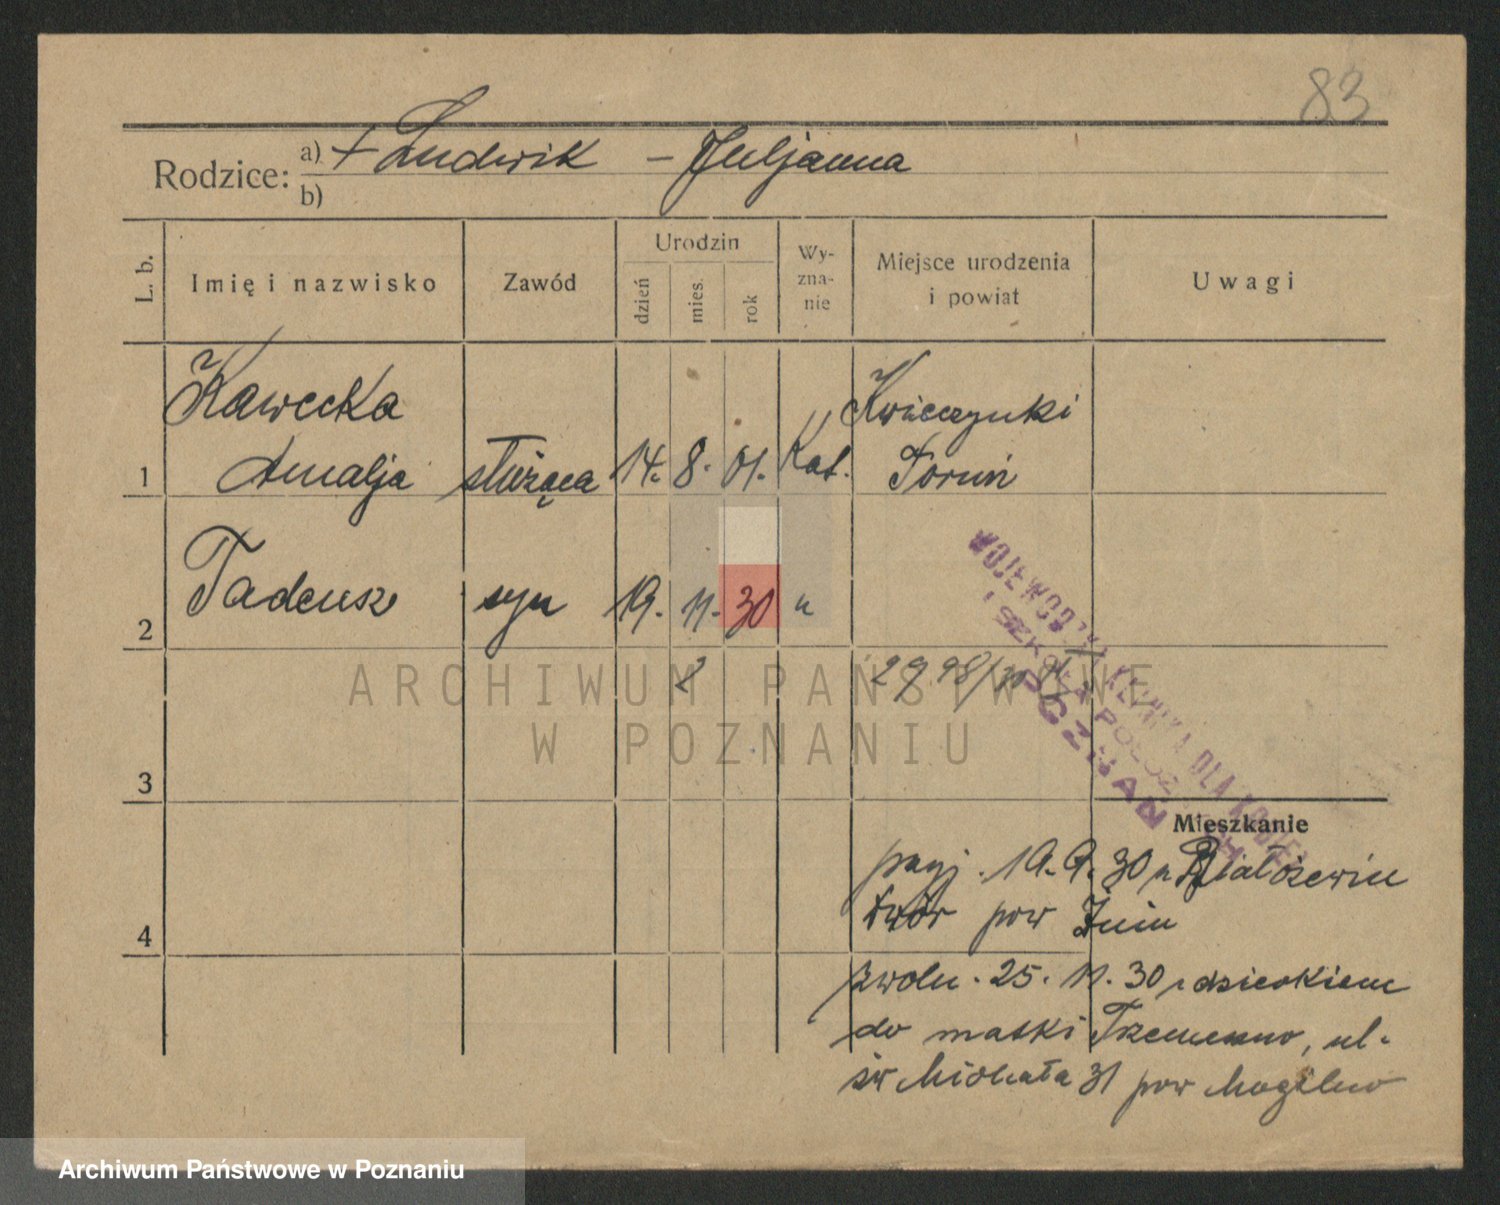 83
Rodzice: a) + Ludwik – Juljanna
b)
L. b.
Imię i nazwisko
Zawód
Urodzin
dzień
mies.
rok
Wy-
zna-
nie
Miejsce urodzenia
i powiat
Uwagi
Kawecka
Kwieczynki
1 Amalja służąca 14. 8. 01. Kat. Toruń
2 Tadeusz syn 19. 11. 30 "
2
3
4
WOJEWÓDZKA KLINIKA DLA KOBIET
I SZKOŁA POŁOŻNYCH
POZNAŃ
Mieszkanie
przyj. 19. 9. 30 z Białożewin
dwór pow Żnin
zwoln. 25. 11. 30 z dzieckiem
do matki Trzemeszno, ul.
św Michała 31 pow Mogilno
ARCHIWUM PAŃSTWOWE
W POZNANIU
Archiwum Państwowe w Poznaniu